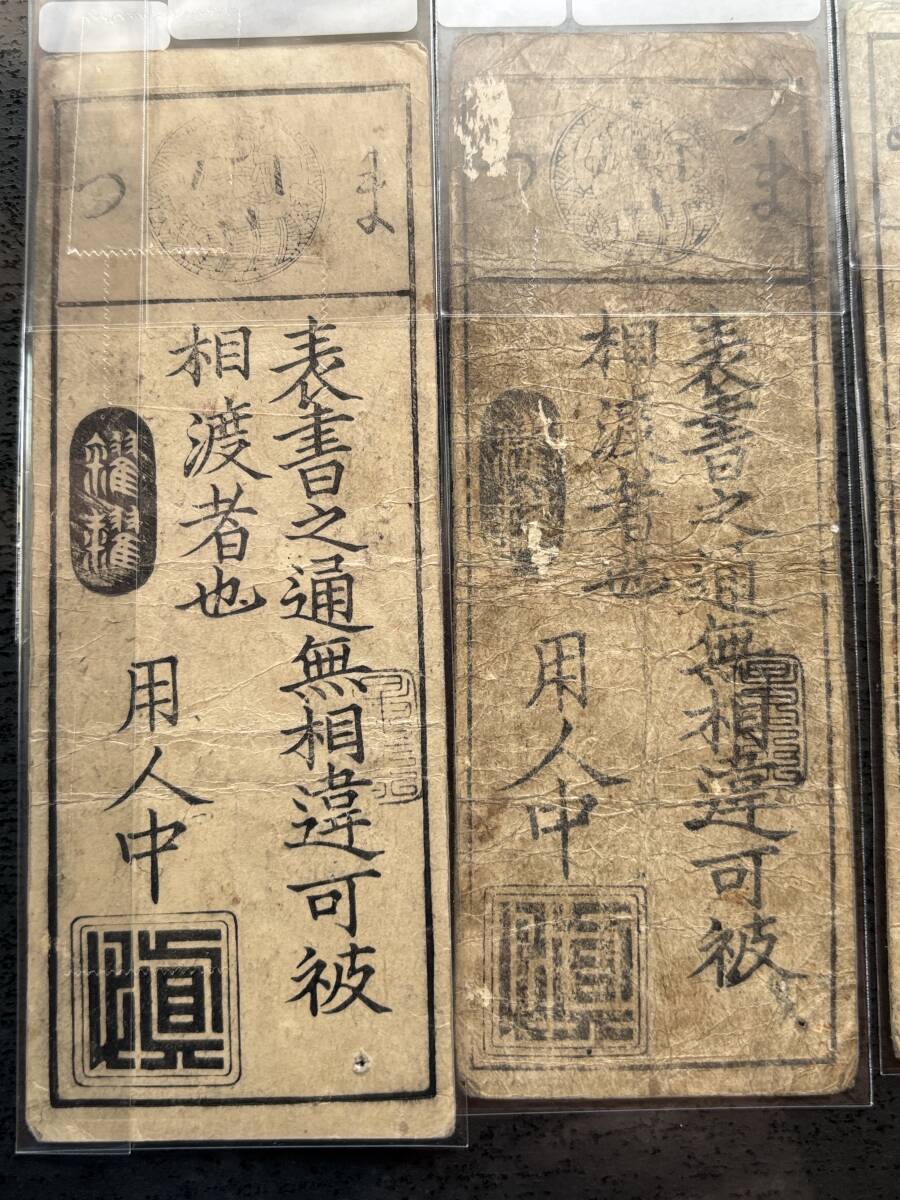 ま
つ
表書之通無相違可被
相渡者也
用人中
ま
つ
表書之通無相違可被
相渡者也
用人中